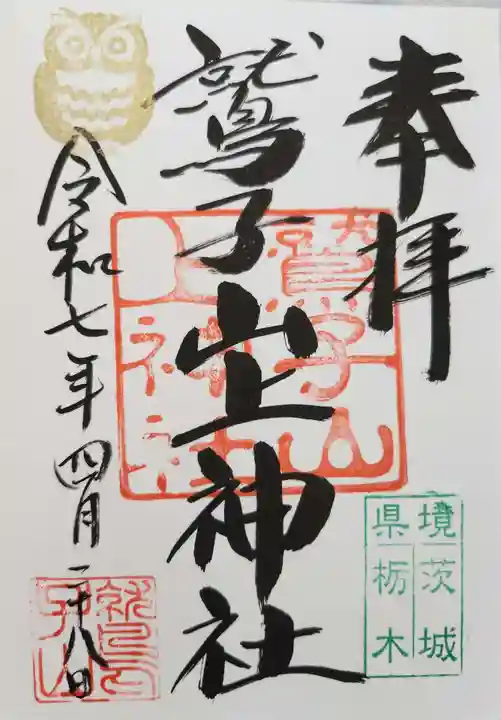 奉拝
鷲子山上神社
鷲子山
上神社
境茨城
県栃木
令和七年四月二十八日
鷲子山